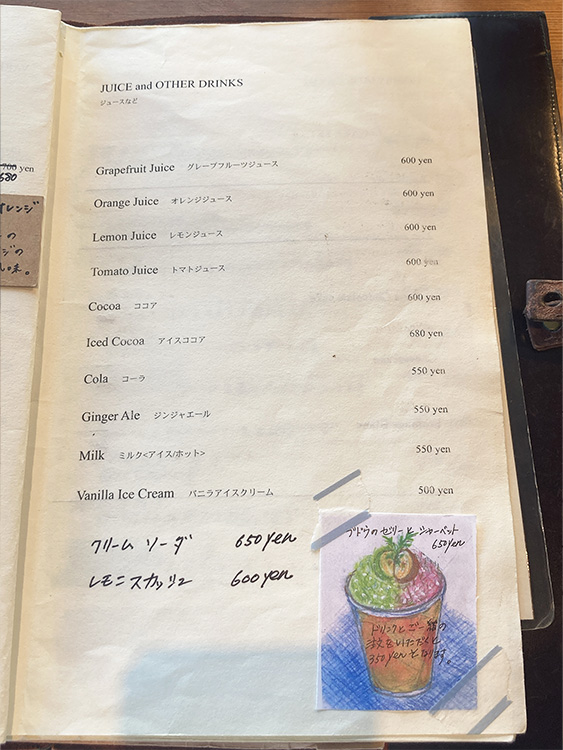 700 yen
680
オレンジ
の
ジの
味。
JUICE and OTHER DRINKS
ジュースなど
Grapefruit Juice グレープフルーツジュース 600 yen
Orange Juice オレンジジュース 600 yen
Lemon Juice レモンジュース 600 yen
Tomato Juice トマトジュース 600 yen
Cocoa ココア 600 yen
Iced Cocoa アイスココア 680 yen
Cola コーラ 550 yen
Ginger Ale ジンジャエール 550 yen
Milk ミルク<アイス/ホット> 550 yen
Vanilla Ice Cream バニラアイスクリーム 500 yen
クリーム ソーダ 650 yen
レモンスカッシュ 600 yen
ブドウのゼリーとシャーベット
650yen
ドリンクとご一緒の
注文をいただくと
350yenとなります。